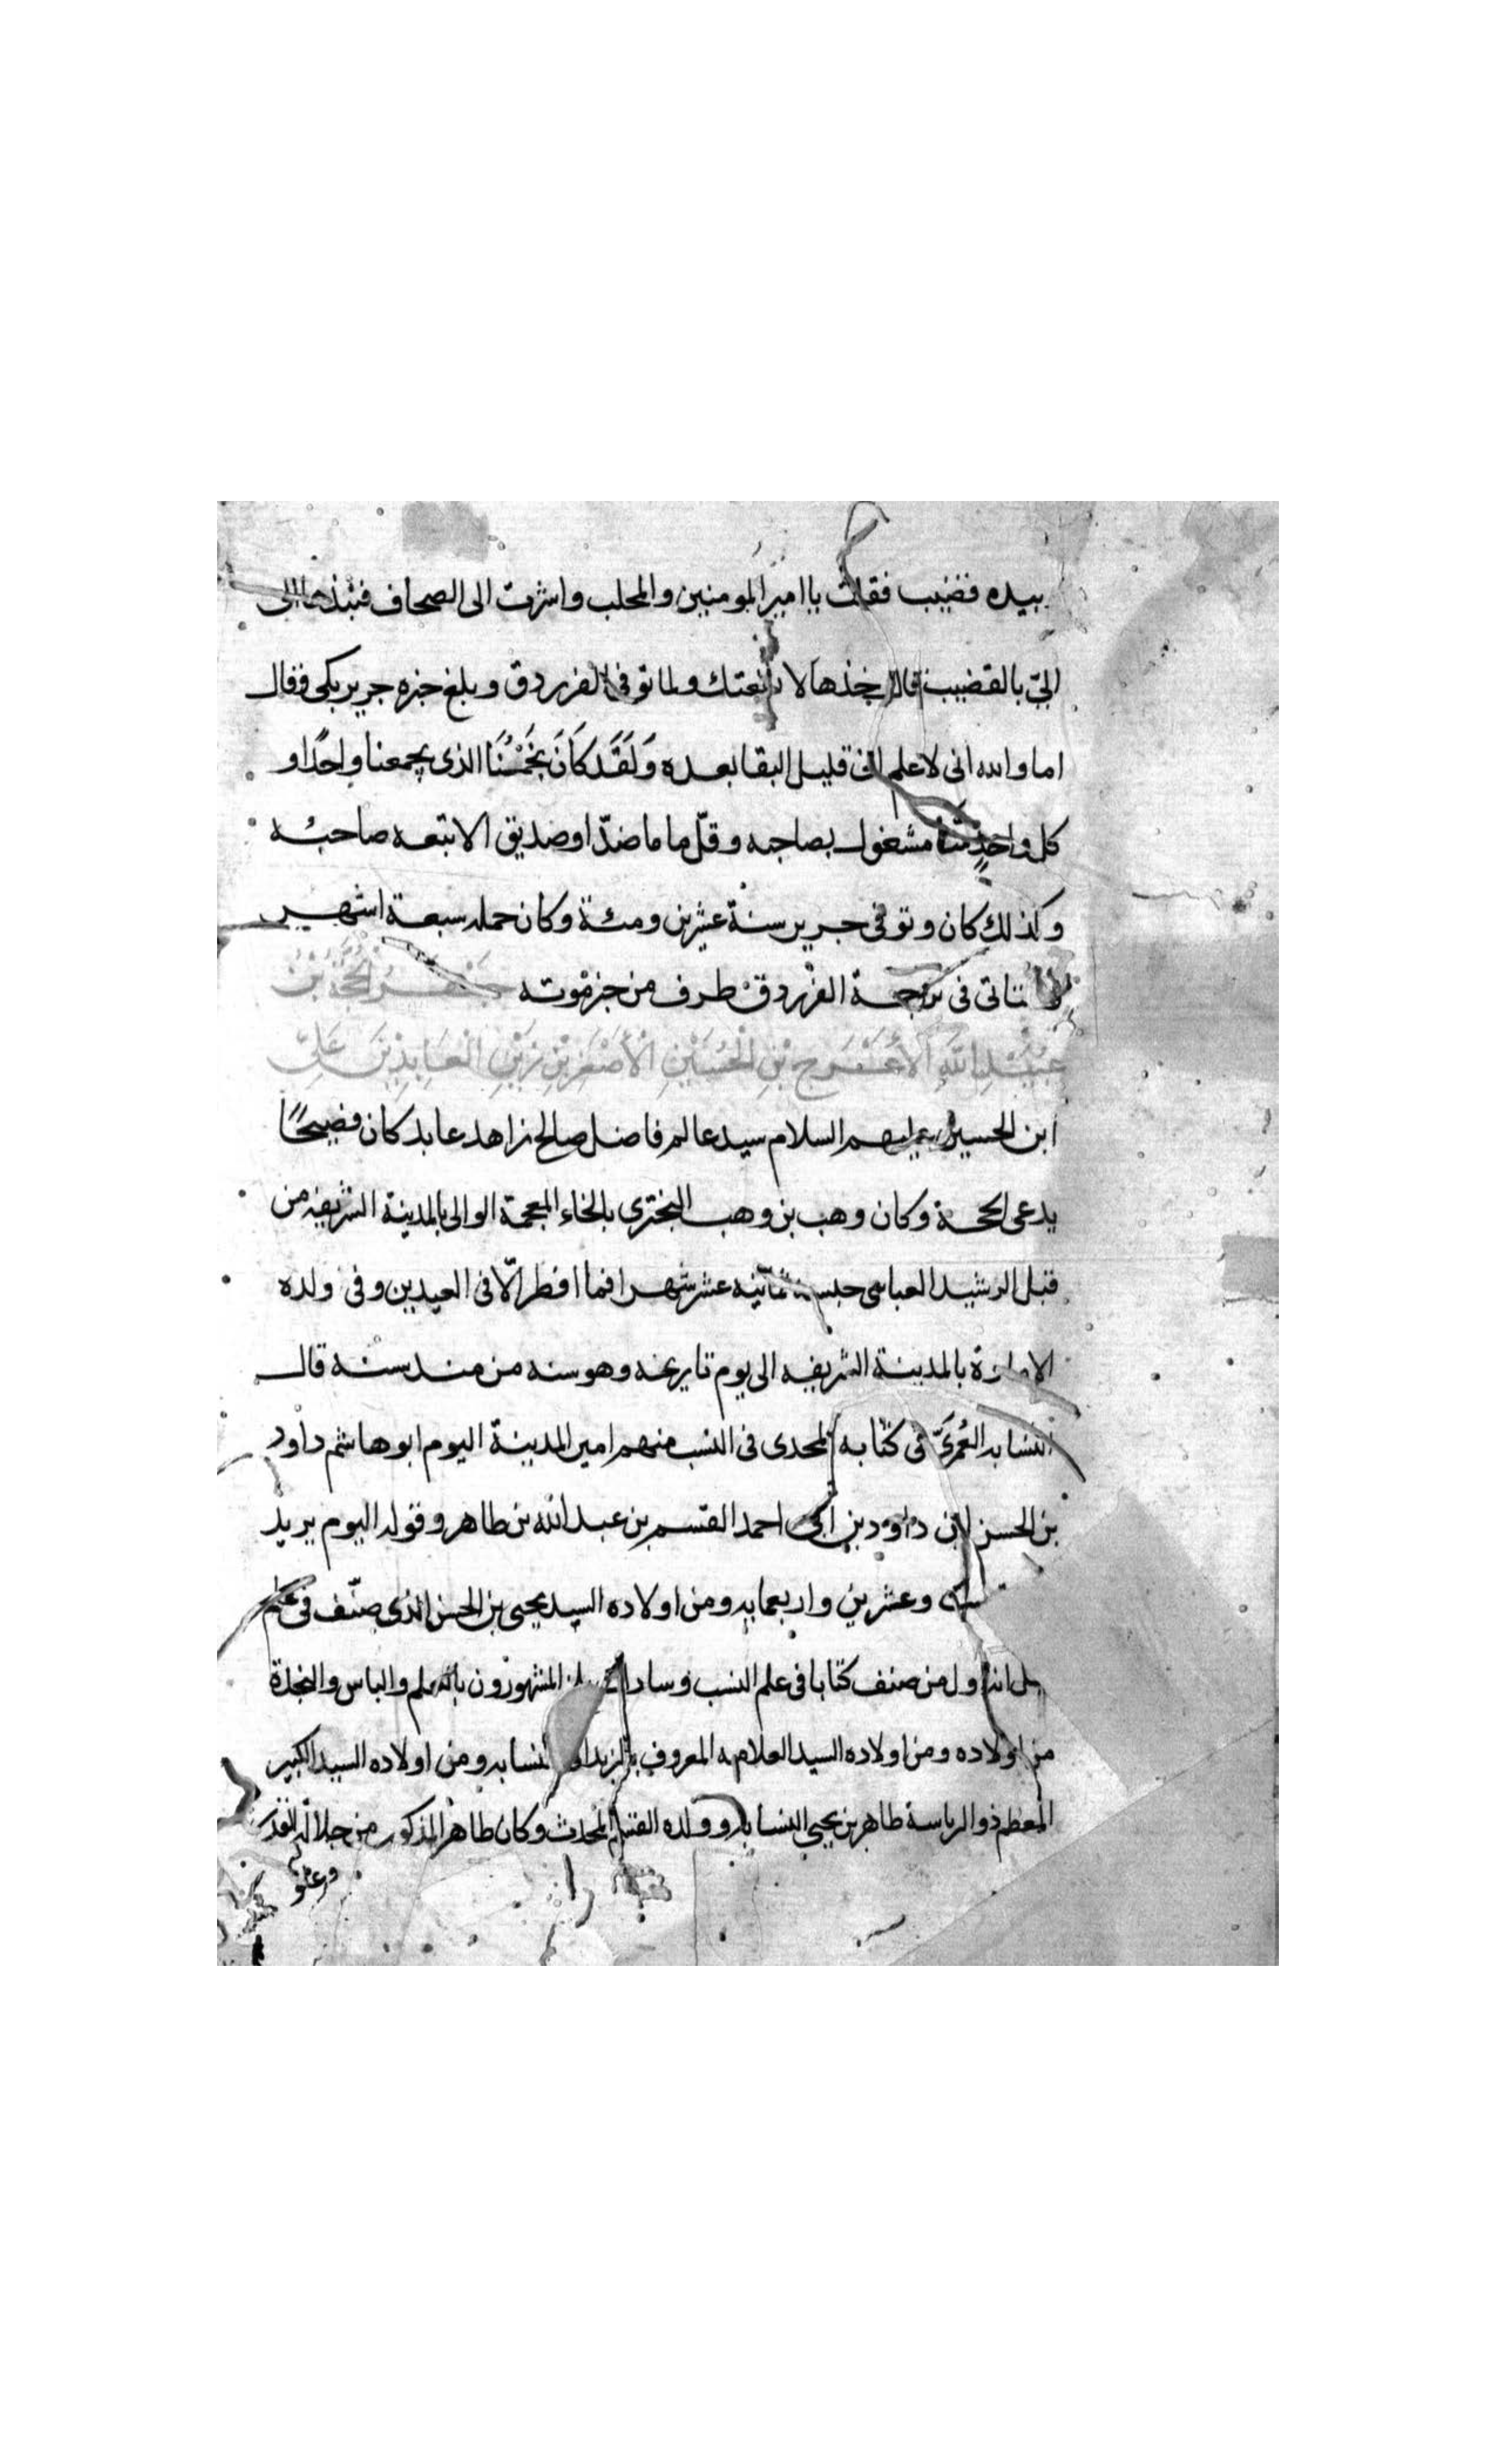 بيده قضيب فقلت يا امير المومنين والمحلب واشرت الى الصحاف فنبذها الى
الىّ بالقضيب قال خذها لا نفعتك ولما توفى الفرزدق وبلغ خبره جرير بكى وقال
اما والله انى لاعلم انى قليل البقا بعده وَلَقَد كَانَ نَجْمُنَا الذى يجمعنا واحدًا و
كل واحدٍ منّا مشغول بصاحبه وقلّ ما مات ضدّ او صديق الا تبعه صاحبُه
وكذلك كان وتوفى جرير سنة عشرين ومئة وكان حمله سبعة اشهر
ستاتى فى ترجمة الفرزدق طرف من خبر موته جَعْفَرُ الحُجَّةُ بْنُ
عُبَيْدِ اللَّهِ الأَعْرَج بْنِ الْحُسَيْنِ الأَصْغَرِ بْنِ زَيْنِ الْعَابِدِيْنَ عَلِىِّ
ابن الحسين عليهم السلام سيد عالم فاضل صالح زاهد عابد كان فصيحًا
يدعى الحجة وكان وهب بن وهب البخترى بالخاء المعجمة الوالى بالمدينة الشريفه من
قبل الرشيد العباسى حبسه ثمانيه عشر شهرا فما افطر الّا فى العيدين وفى ولده
الامارة بالمدينة الشريفه الى يوم تاريخه وهو سنه من مند سنه قال
النسابه العُمَرىّ فى كتابه المجدى فى النسب منهم امير المدينة اليوم ابو هاشم داود
بن الحسن بن داود بن ابى احمد القسم بن عبد الله بن طاهر وقوله اليوم يريد
وعشرين واربعمايه ومن اولاده السيد يحيى بن الحسن الذى صنّف فى علم
انه اول من صنف كتابا فى علم النسب وسادات المشهورون بالعلم والباس والنجدة
من اولاده ومن اولاده السيد العلامه المعروف النسابه ومن اولاده السيد الكبير
المعظم ذو الرياسة طاهر بن يحيى النسابه وولده القسم المحدث وكان طاهر المذكور من جلالة القدر